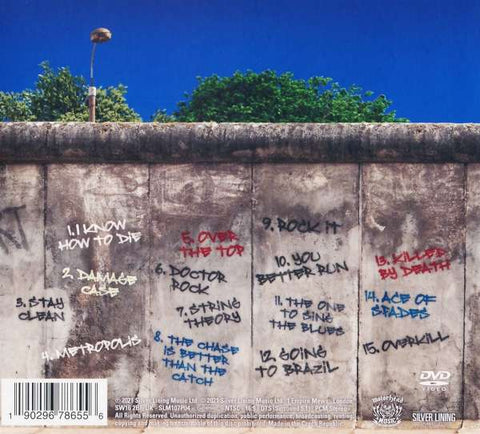 1. I KNOW
HOW TO DIE
2. DAMAGE
CASE
3. STAY
CLEAN
4. METROPOLIS
5. OVER
THE TOP
6. DOCTOR
ROCK
7. STRING
THEORY
8. THE CHASE
IS BETTER
THAN THE
CATCH
9. ROCK IT
10. YOU
BETTER RUN
11. THE ONE
TO SING
THE BLUES
12. GOING
TO BRAZIL
13. KILLED
BY DEATH
14. ACE OF
SPADES
15. OVERKILL
1 90296 78655 6
℗ 2021 Silver Lining Music Ltd. © 2021 Silver Lining Music Ltd.
SLM107P04
NTSC
Unauthorized duplication, public performance, broadcasting, renting,
Made in the Czech Republic
DVD
VIDEO
motörhead
MUSIC
SILVER LINING